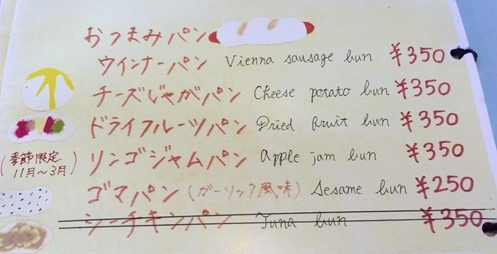 おつまみパン
ウインナーパン Vienna sausage bun ¥350
チーズじゃがパン Cheese potato bun ¥350
ドライフルーツパン Dried fruit bun ¥350
(季節限定 11月～3月) リンゴジャムパン Apple jam bun ¥350
ゴマパン (ガーリック風味) Sesame bun ¥250
シーチキンパン Tuna bun ¥350